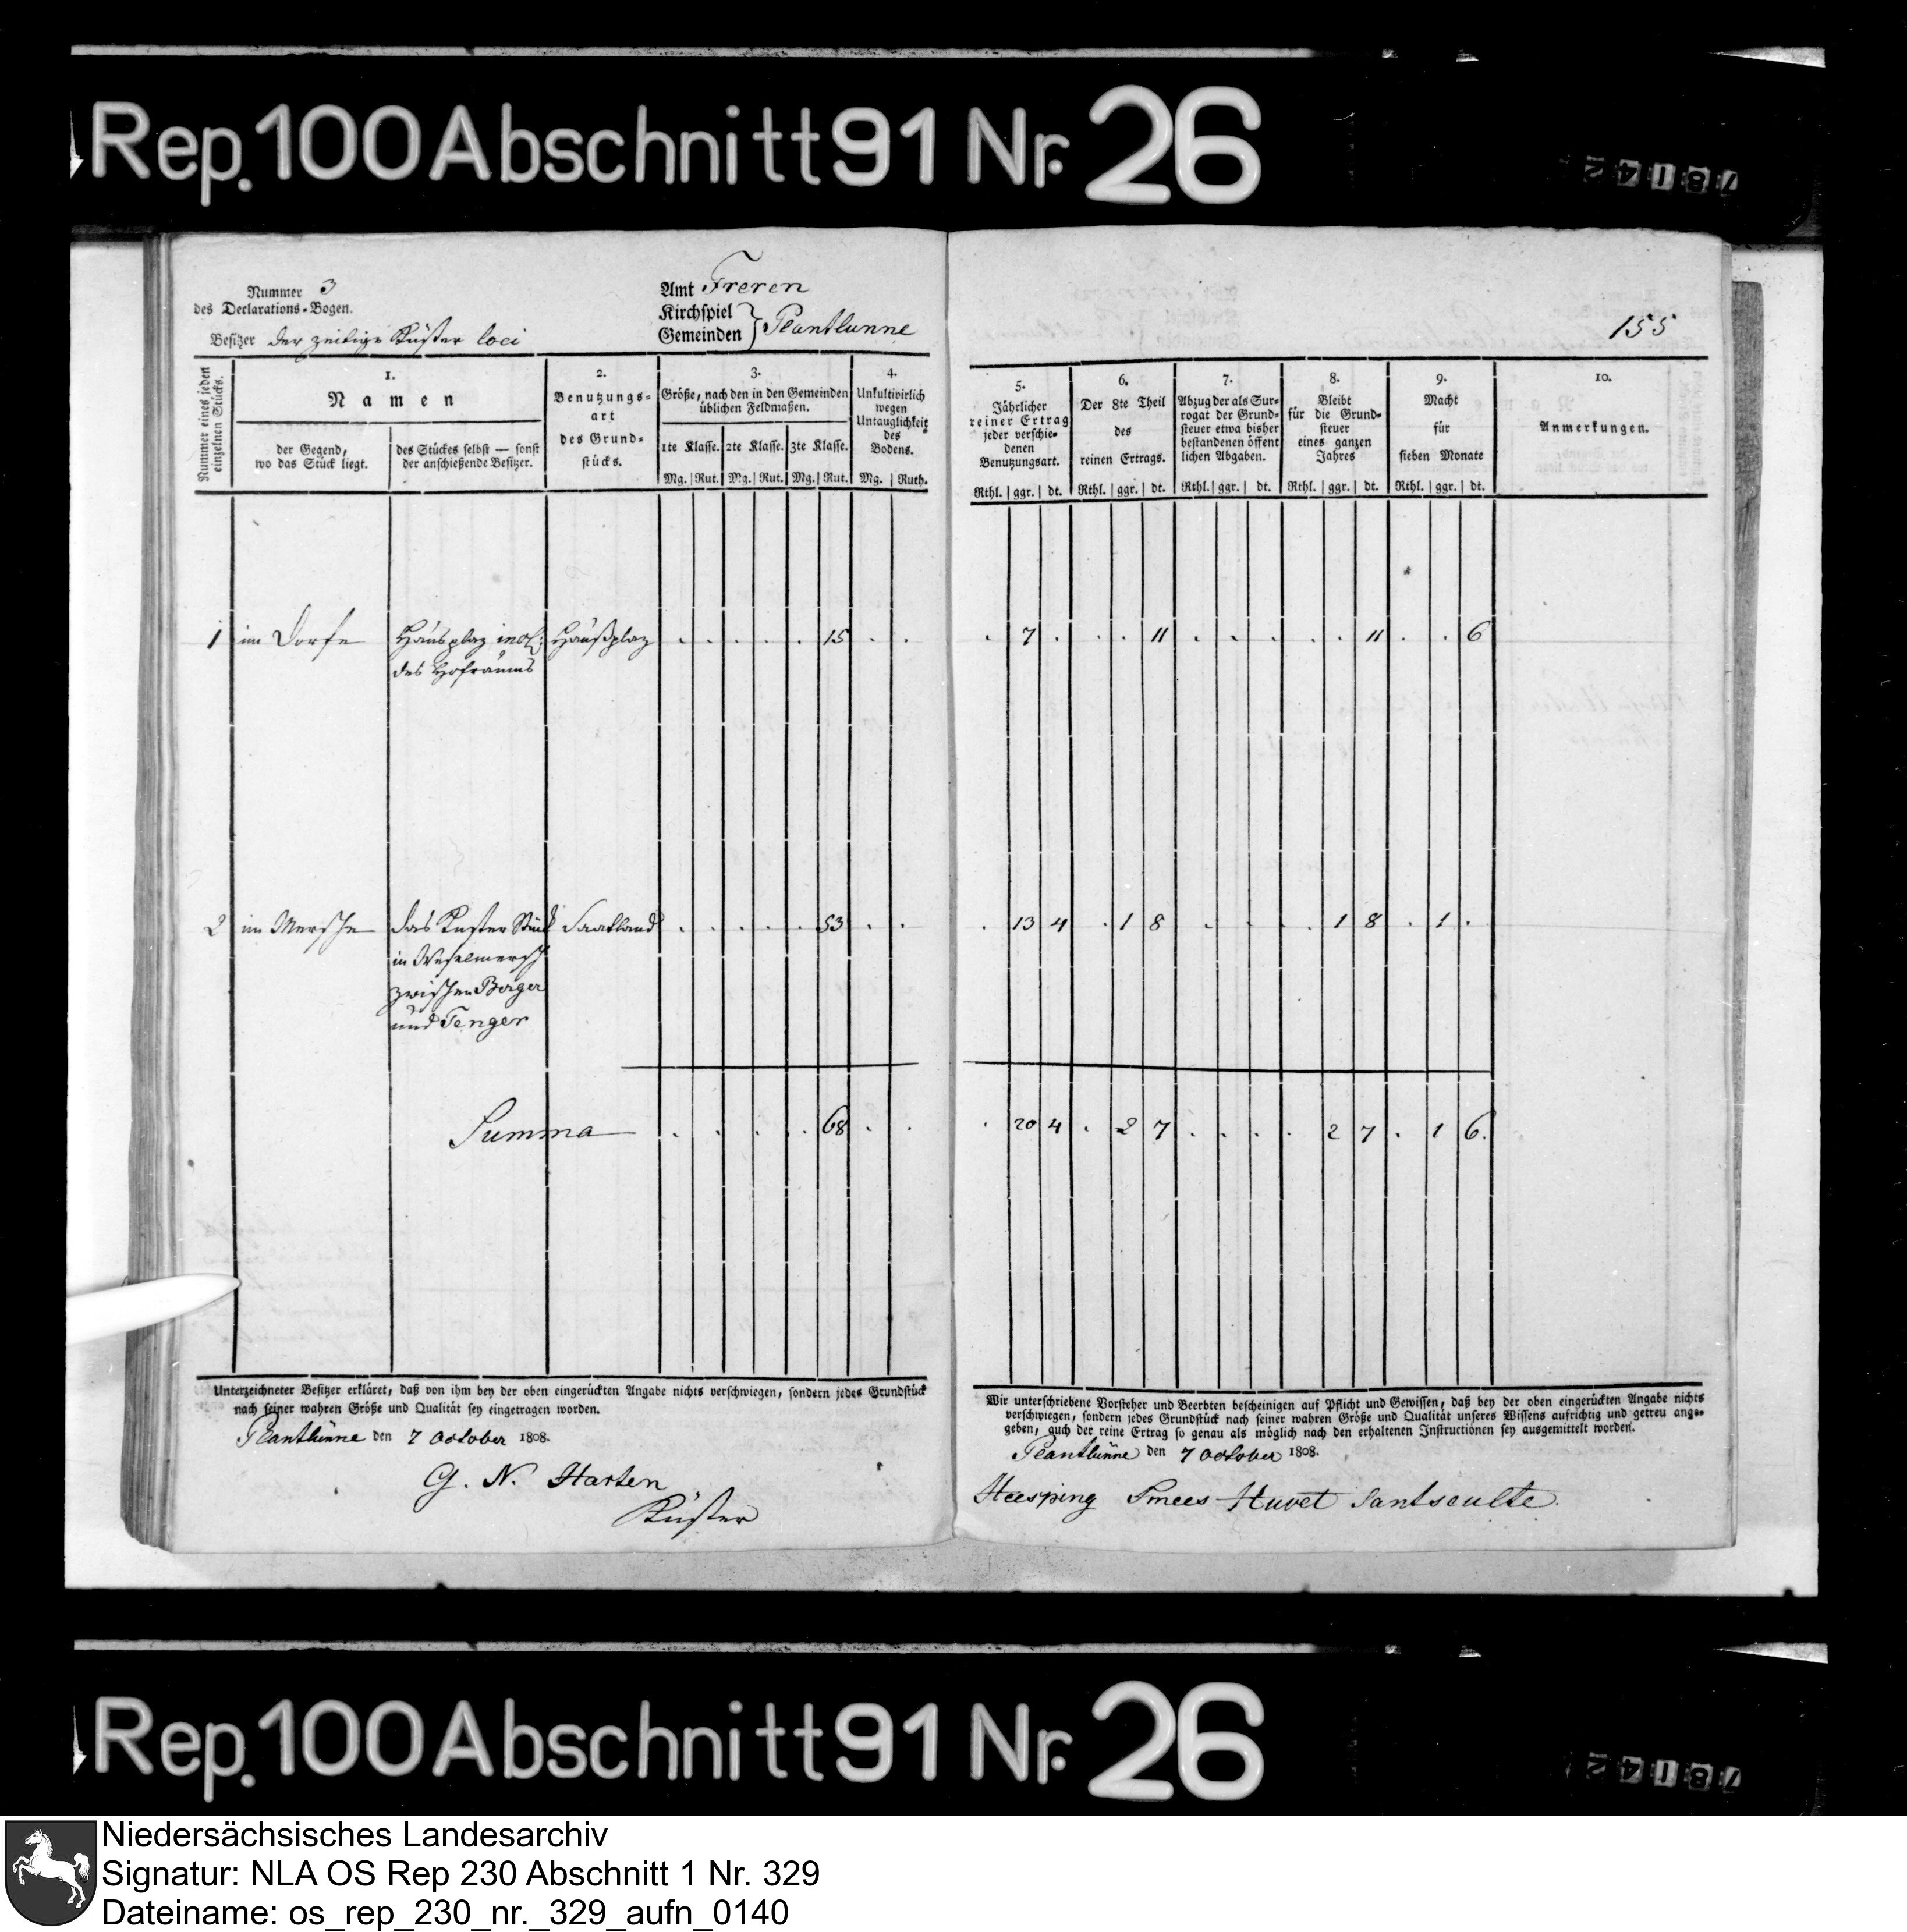 Rep. 100 Abschnitt 91 Nr. 26
78142
Nummer 3
des Declarations-Bogen.
Besitzer der zeitige Küster loci
Amt Freren
Kirchspiel
Gemeinden } Plantlunne
155
Nummer eines jeden einzelnen Stücks.
1.
Namen
der Gegend, wo das Stück liegt.
des Stückes selbst — sonst der anschießende Besitzer.
2.
Benutzungs-art des Grund-stücks.
3.
Größe, nach den in den Gemeinden üblichen Feldmaßen.
1te Klasse. 2te Klasse. 3te Klasse.
Mg. Rut. Mg. Rut. Mg. Rut.
4.
Unkultivirlich wegen Untauglichkeit des Bodens.
Mg. Ruth.
5.
Jährlicher reiner Ertrag jeder verschie-denen Benutzungsart.
Rthl. ggr. dt.
6.
Der 8te Theil des reinen Ertrags.
Rthl. ggr. dt.
7.
Abzug der als Sur-rogat der Grund-steuer etwa bisher bestandenen öffent lichen Abgaben.
Rthl. ggr. dt.
8.
Bleibt für die Grund-steuer eines ganzen Jahres
Rthl. ggr. dt.
9.
Macht für sieben Monate
Rthl. ggr. dt.
10.
Anmerkungen.
1 im Dorfe Hausplaz incl: Haußplaz . . . . . 15 . . . 7 . . . 11 . . . . . 11 . . 6
des Hofraums
2 im Mersche das Kuster Stück Saatland . . . . . 53 . . . 13 4 . 1 8 . . . . 1 8 . 1 .
in Weselmersch
zwischen Borger
und Tenger
Summa . . . . . 68 . . . 20 4 . 2 7 . . . . 2 7 . 1 6.
Unterzeichneter Besitzer erkläret, daß von ihm bey der oben eingerückten Angabe nichts verschwiegen, sondern jedes Grundstück
nach seiner wahren Größe und Qualität sey eingetragen worden.
Plantlünne den 7 October 1808.
G. N. Harten
Küster
Wir unterschriebene Vorsteher und Beerbten bescheinigen auf Pflicht und Gewissen, daß bey der oben eingerückten Angabe nichts
verschwiegen, sondern jedes Grundstück nach seiner wahren Größe und Qualität unseres Wissens aufrichtig und getreu ange-
geben, auch der reine Ertrag so genau als möglich nach den erhaltenen Instructionen sey ausgemittelt worden.
Plantlünne den 7 October 1808.
Heesping Smees Huvet Santschulte.
Rep. 100 Abschnitt 91 Nr. 26
78142
Niedersächsisches Landesarchiv
Signatur: NLA OS Rep 230 Abschnitt 1 Nr. 329
Dateiname: os_rep_230_nr._329_aufn_0140